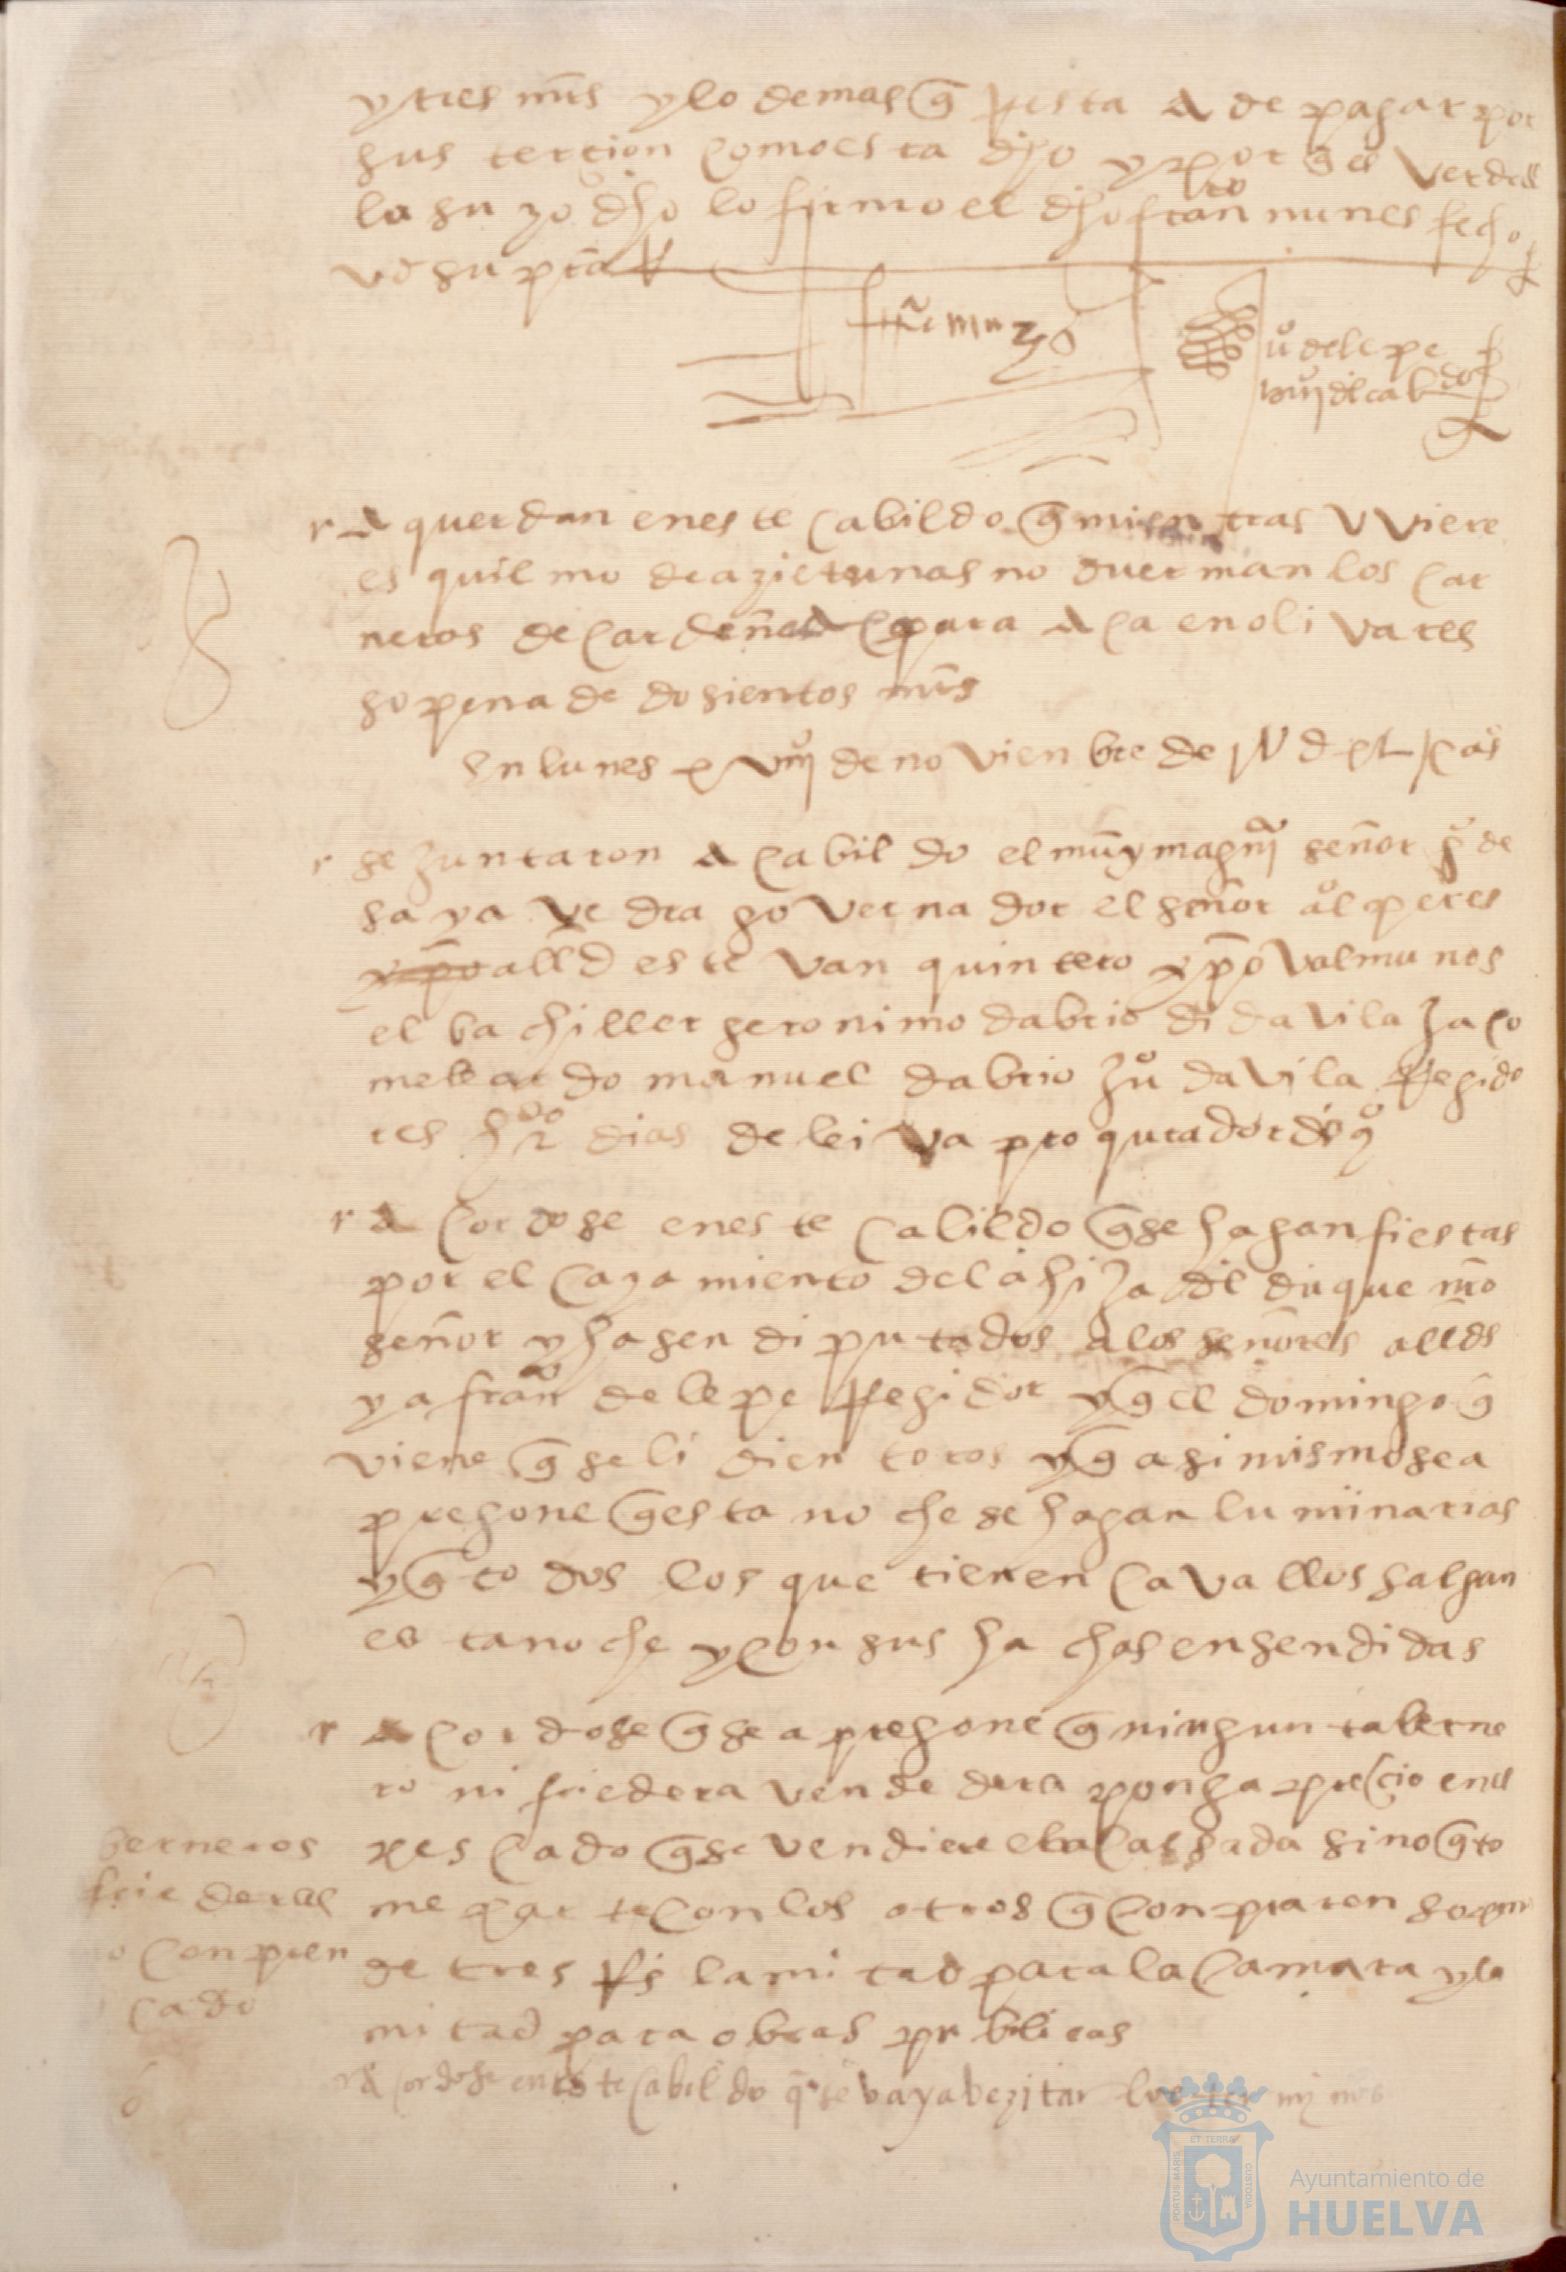 y tres mrs y lo demas q resta a de pagar por
sus tercion como esta dho y por q es verdad
lo suzo dho lo firmo el dho fran^co nunes fecho
vd supra
u° de lepe
A querdan en este cabildo q mientras vviere
esquilmo de azietunas no duerman los car
neros de cardeñas para aca en olivares
so pena de dosientos mrs
En lunes xviij° de novienbre de
se juntaron a cabildo el muy mag^co señor g° de
sayavedra governador el señor al° peres
alld estevan quintero y p° valmunos
el bachiller geronimo dabrio di davila jaco
me leardo manuel dabrio ju° davila Regido
res dias de leiva procurador
a cordose en este cabildo q se hagan fiestas
por el cazamiento de la hija del duque nro
señor y hasen diputados a los señores allds
y a fran^co de lepe Regidor y q el domingo q
viene q se lidien toros y q asi mismo se a
pregone q esta noche se hagan luminarias
y q todos los que tienen cavallos salgan
esta noche y con sus hachas ensendidas
a cordose q se apregone q ningun taberne
ro ni friedera vendedera ponga precio en el
pescado q se vendiere en la calsada sino q to
me parte con los otros q conpraren so pena
de tres rs la mitad para la camara y la
mitad para obras publicas
berneros
friederas
o conpren
cado
a cordose en este cabildo q se vaya bezitar los terminos
PORTUS MARIS
ET TERRAE
CUSTODIA
Ayuntamiento de
HUELVA